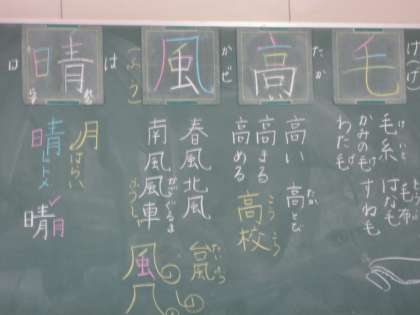 け(
毛
毛糸
けいと
かみの毛
げ
わた毛
げ
はな毛
すね毛
毛布
高
たか
高い
高まる
高める
高とび
たか
高校
こうこう
風
かぜ
(ふう)
春風
北風
南風
風車
かざぐるま
ふうしゃ
台風
たいふう
風
晴
は
は
月
はらい
晴
日
トメ
晴
月